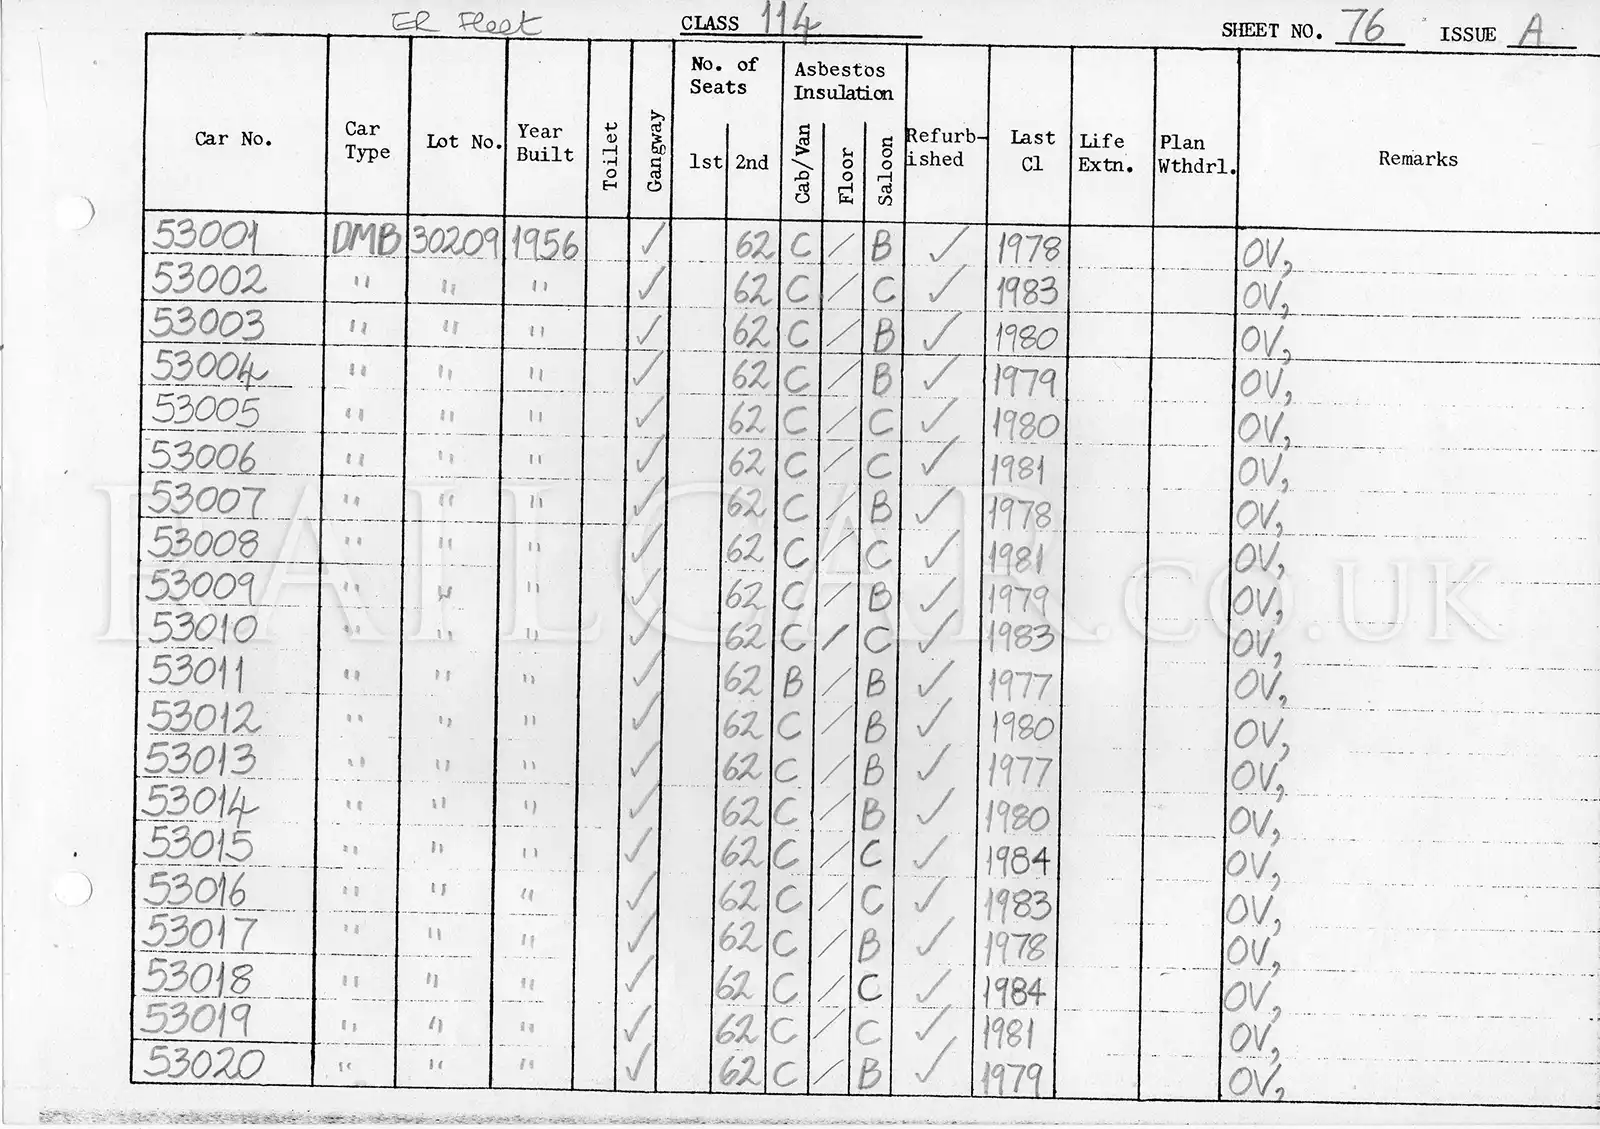 ER Fleet CLASS 114 SHEET NO. 76 ISSUE A
Car No. Car Type Lot No. Year Built Toilet Gangway No. of Seats 1st 2nd Asbestos Insulation Cab/Van Floor Saloon Refurb-ished Last Cl Life Extn. Plan Wthdrl. Remarks
53001 DMB 30209 1956 ✓ 62 C / B ✓ 1978 OV,
53002 " " " ✓ 62 C / C ✓ 1983 OV,
53003 " " " ✓ 62 C / B ✓ 1980 OV,
53004 " " " ✓ 62 C / B ✓ 1979 OV,
53005 " " " ✓ 62 C / C ✓ 1980 OV,
53006 " " " ✓ 62 C / C ✓ 1981 OV,
53007 " " " ✓ 62 C / B ✓ 1978 OV,
53008 " " " ✓ 62 C / C ✓ 1981 OV,
53009 " " " ✓ 62 C / B ✓ 1979 OV,
53010 " " " ✓ 62 C / C ✓ 1983 OV,
53011 " " " ✓ 62 B / B ✓ 1977 OV,
53012 " " " ✓ 62 C / B ✓ 1980 OV,
53013 " " " ✓ 62 C / B ✓ 1977 OV,
53014 " " " ✓ 62 C / B ✓ 1980 OV,
53015 " " " ✓ 62 C / C ✓ 1984 OV,
53016 " " " ✓ 62 C / C ✓ 1983 OV,
53017 " " " ✓ 62 C / B ✓ 1978 OV,
53018 " " " ✓ 62 C / C ✓ 1984 OV,
53019 " " " ✓ 62 C / C ✓ 1981 OV,
53020 " " " ✓ 62 C / B ✓ 1979 OV,
RAILCAR.CO.UK